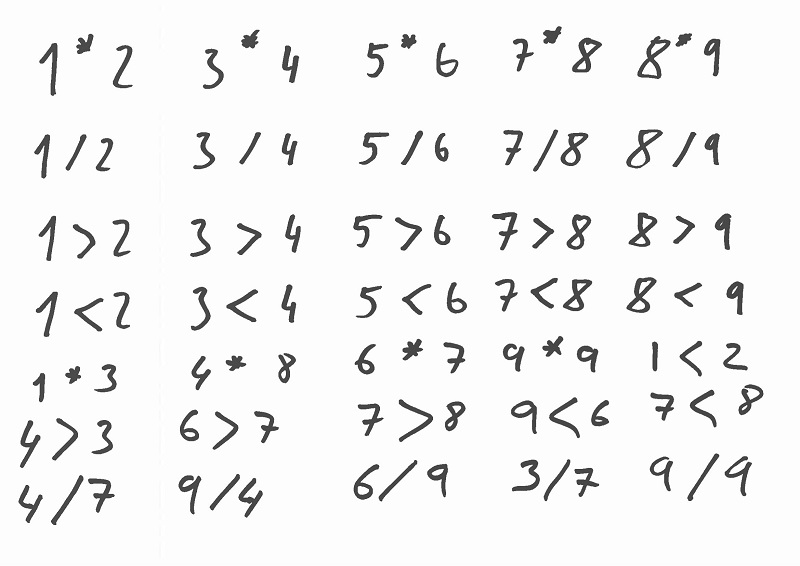 1 * 2 3 * 4 5 * 6 7 * 8 8 * 9
1 / 2 3 / 4 5 / 6 7 / 8 8 / 9
1 > 2 3 > 4 5 > 6 7 > 8 8 > 9
1 < 2 3 < 4 5 < 6 7 < 8 8 < 9
1 * 3 4 * 8 6 * 7 9 * 9 1 < 2
4 > 3 6 > 7 7 > 8 9 < 6 7 < 8
4 / 7 9 / 4 6 / 9 3 / 7 9 / 9